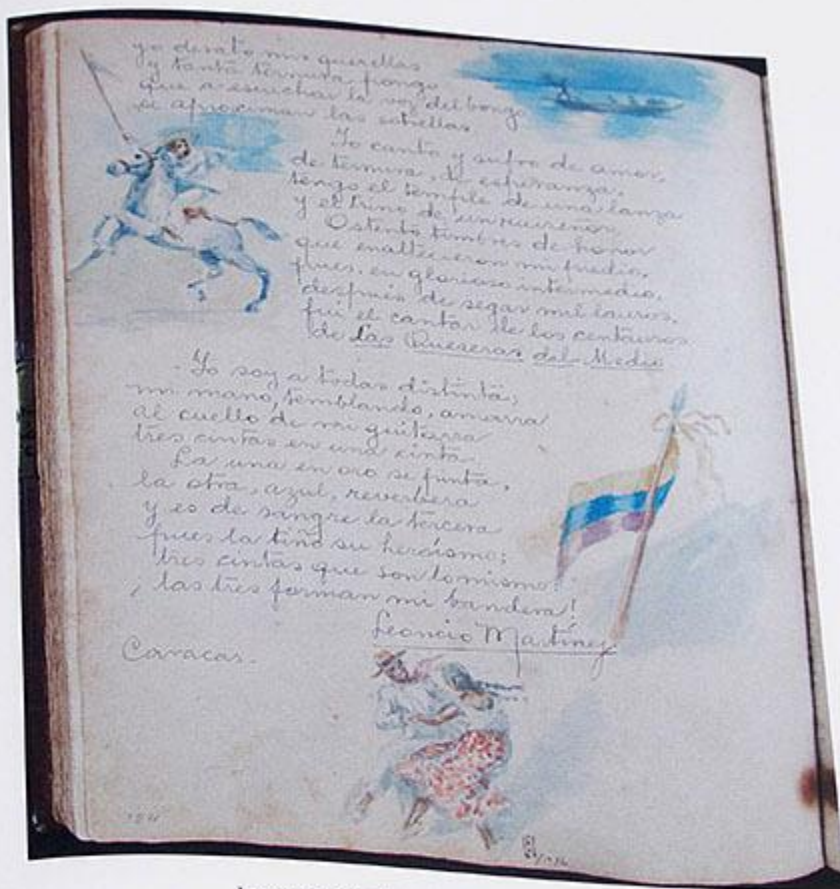 yo desato mis querellas
y tanta ternura pongo
que a escuchar la voz del bongo
se aproximan las estrellas.
Yo canto y sufro de amor,
de ternura, de esperanza,
tengo el temple de una lanza
y el trino de un ruiseñor.
Ostento timbres de honor
que enaltecieron mi predio,
pues, en glorioso intermedio,
después de segar mil lauros,
fui el cantar de los centauros
de Las Queseras del Medio
Yo soy a todas distinta;
mi mano, temblando, amarra
al cuello de mi guitarra
tres cintas en una cinta.
La una en oro se pinta,
la otra, azul, reverbera
y es de sangre la tercera
pues la tiñó su heroísmo;
tres cintas que son lo mismo:
¡las tres forman mi bandera!
Leoncio Martínez
Caracas.